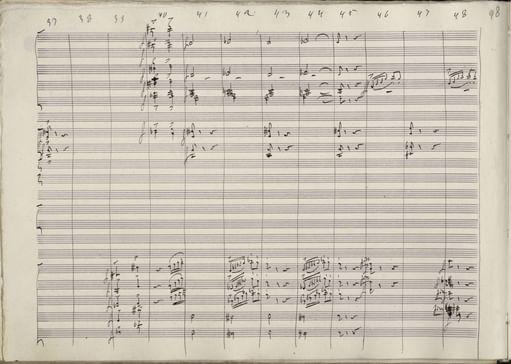 37 38 39 40 41 42 43 44 45 46 47 48 98